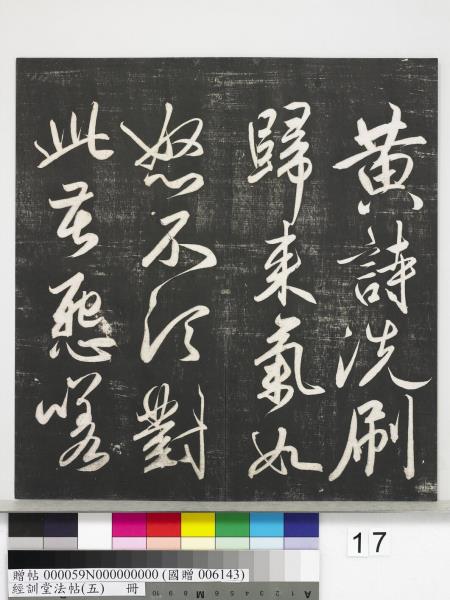 黃詩洗刷
歸来氣如
怒不須對
此
17
贈帖 000059N000000000 (國贈 006143)
經訓堂法帖(五) 冊